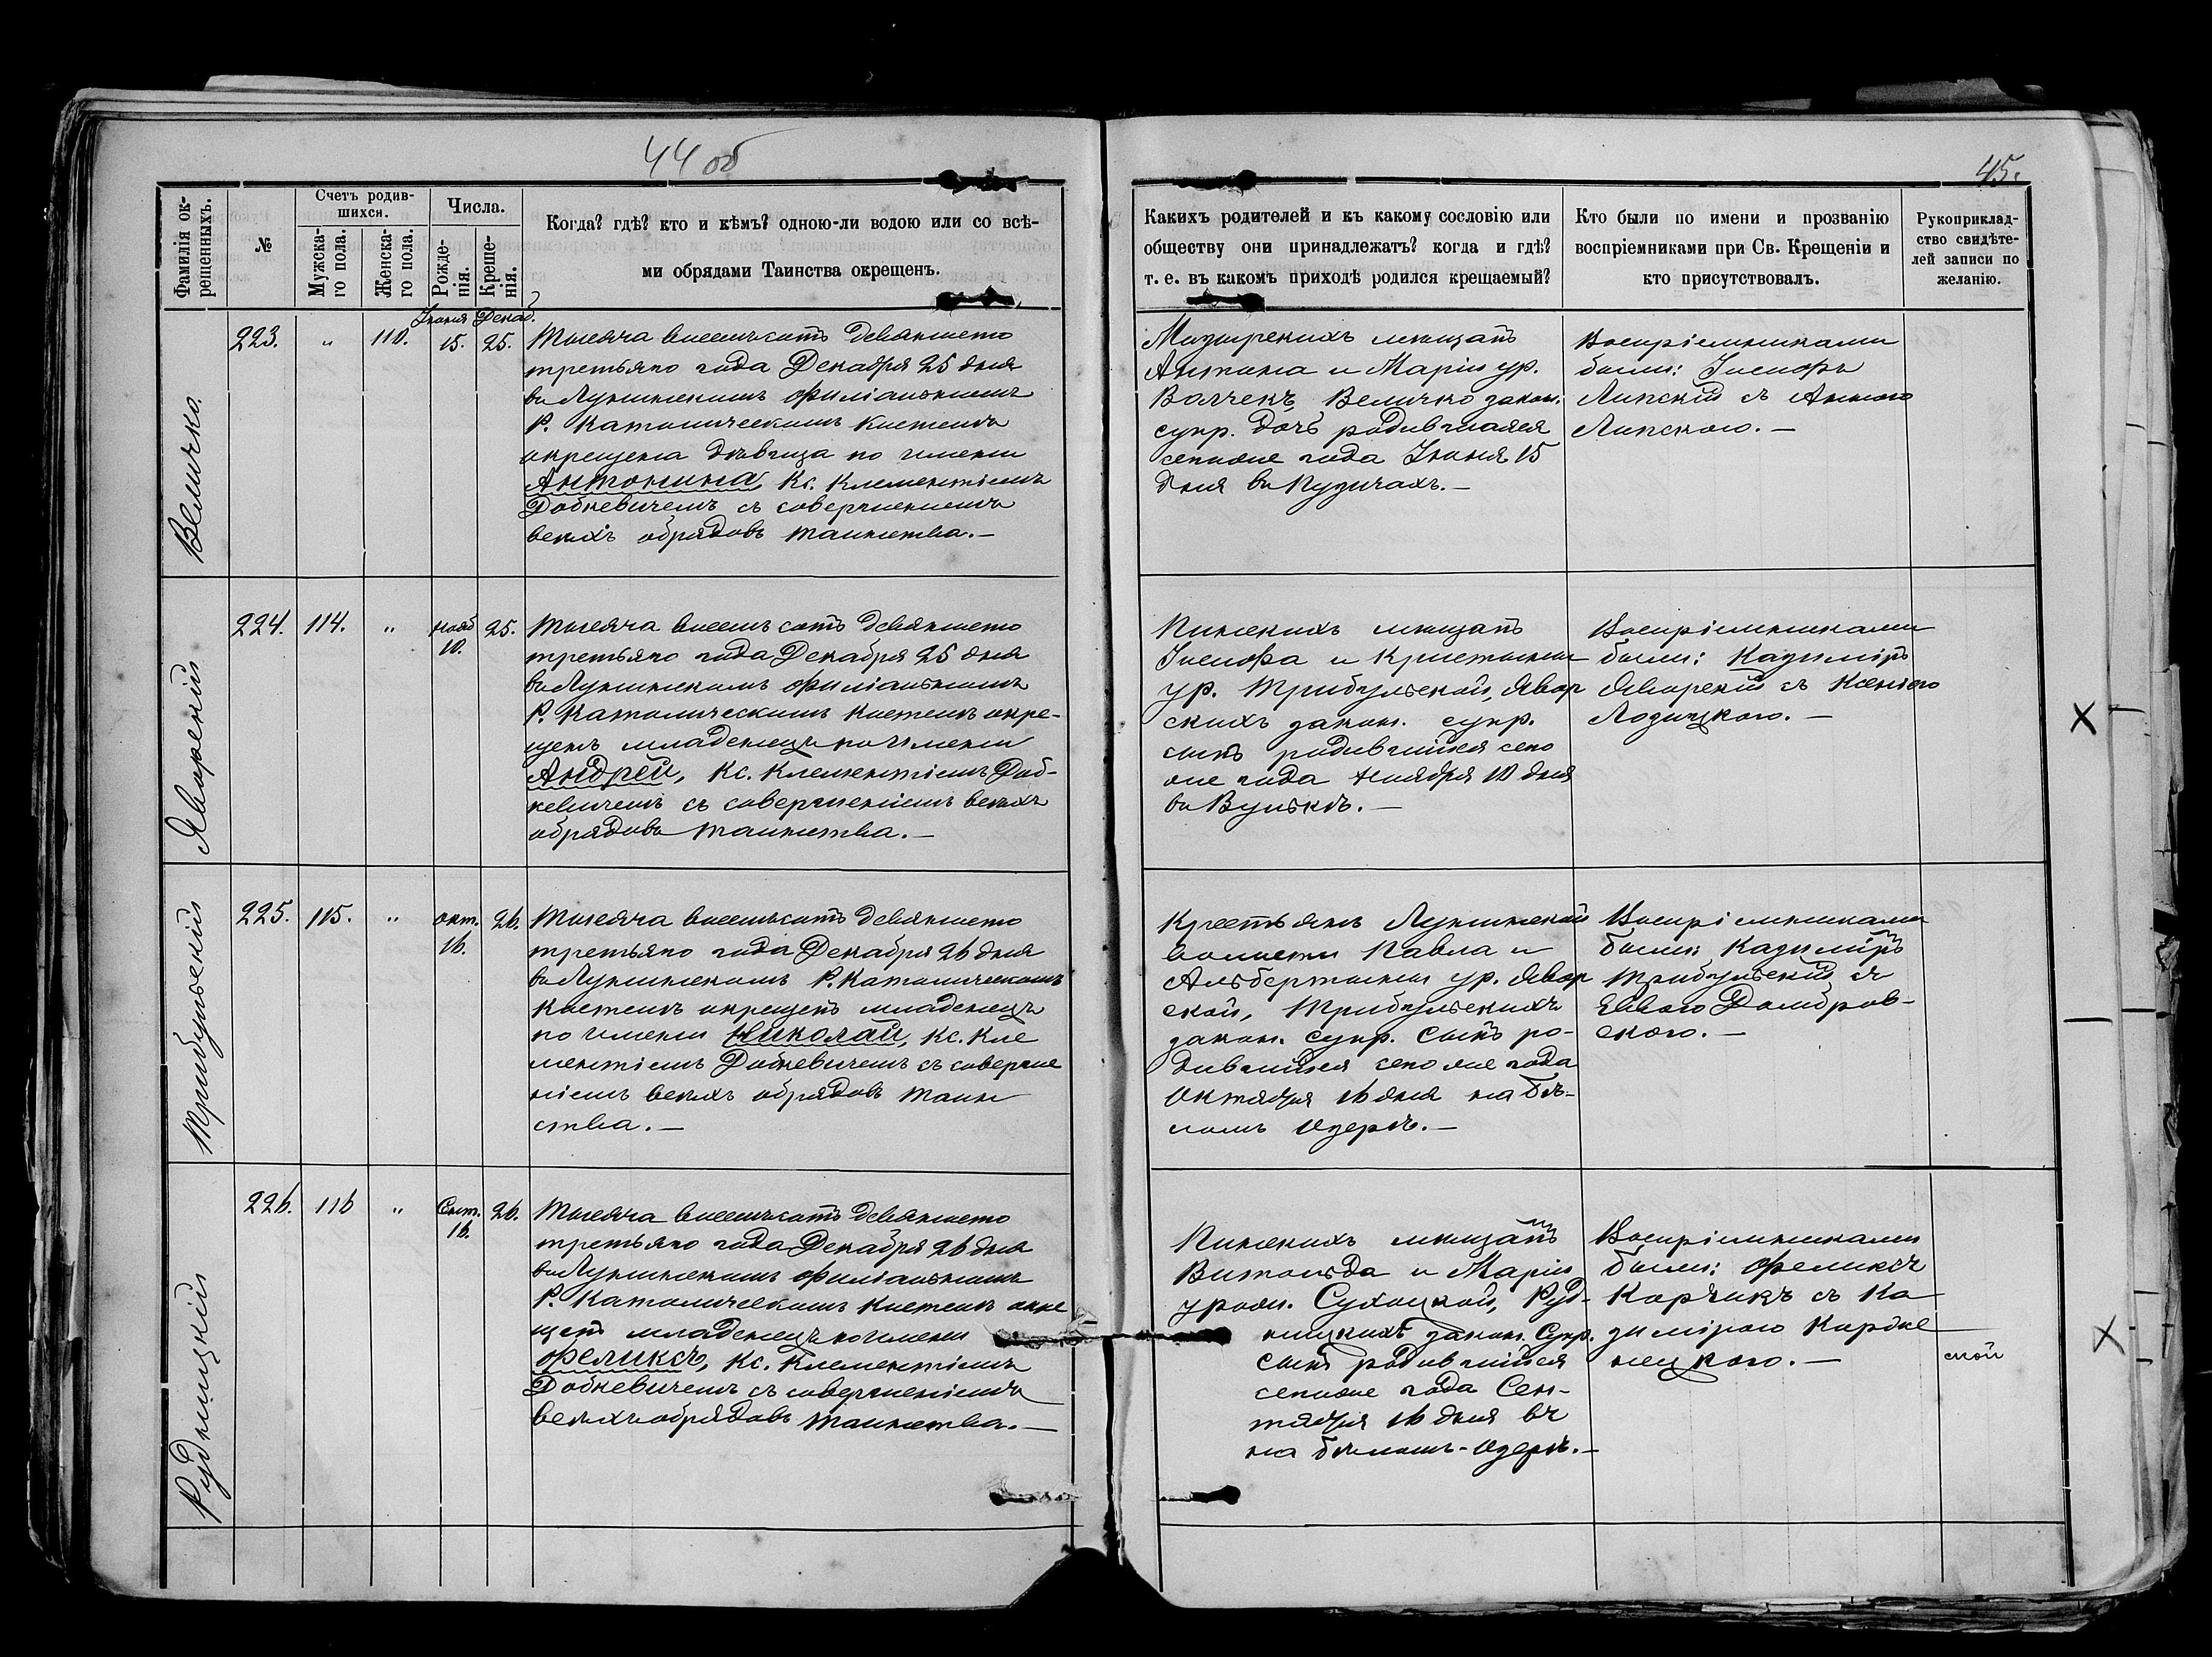 44 об
45.
Фамилія ок-
рещенныхъ.
№
Счетъ родив-
шихся.
Мужска-
го пола.
Женска-
го пола.
Числа.
Рожде-
нія.
Креще-
нія.
Когда? гдѣ? кто и кѣмъ? одною-ли водою или со всѣ-
ми обрядами Таинства окрещенъ.
Какихъ родителей и къ какому сословію или
обществу они принадлежатъ? когда и гдѣ?
т. е. въ какомъ приходѣ родился крещаемый?
Кто были по имени и прозванію
воспріемниками при Св. Крещеніи и
кто присутствовалъ.
Рукоприклад-
ство свидѣте-
лей записи по
желанію.
Величко.
223.
"
110.
Іюня Декаб.
15. 25.
Тысяча восемьсотъ девяносто
третьяго года Декабря 25 дня
въ Лунинскомъ Филіальномъ
Р. Католическомъ Костелѣ
окрещена дѣвица по имени
Антонина, Кс. Клементіемъ
Добкевичемъ съ совершеніемъ
всѣхъ обрядовъ таинства.—
Мозырскихъ мѣщанъ
Антона и Маріи ур.
Волчекъ, Величко закон.
супр. дочь родившаяся
сегоже года Іюня 15
дня въ Лузичахъ.—
Воспріемниками
были: Іосифъ
Липскій съ Анною
Липскою.—
Яворскій
224.
114.
"
Нояб
10.
25.
Тысяча восемьсотъ девяносто
третьяго года Декабря 25 дня
въ Лунинскомъ Филіальномъ
Р. Католическомъ Костелѣ окре-
щенъ младенецъ по имени
Андрей, Кс. Клементіемъ Доб-
кевичемъ съ совершеніемъ всѣхъ
обрядовъ таинства.—
Пинскихъ мѣщанъ
Іосифа и Кристины
ур. Трибульской, Явор
скихъ закон. супр.
сынъ родившійся сего
же года Ноября 10 дня
въ Вулькѣ.—
Воспріемниками
были: Казиміръ
Яворскій съ Ксенією
Лозицкою.—
Трибульскій
225.
115.
"
Окт.
16.
26.
Тысяча восемьсотъ девяносто
третьяго года Декабря 26 дня
въ Лунинскомъ Р. Католическомъ
Костелѣ окрещенъ младенецъ
по имени Николай, Кс. Кле
ментіемъ Добкевичемъ съ соверше
ніемъ всѣхъ обрядовъ таин
ства.—
Крестьянъ Лунинской
волости Павла и
Альбертины ур. Явор
ской, Трибульскихъ
закон. супр. сынъ ро-
дившійся сегоже года
Октября 16 дня на Бѣ-
ломъ Озерѣ.—
Воспріемниками
были: Казиміръ
Трибульскій съ
Евою Домбров-
скою.—
Рудницкій
226.
116
"
Сент.
16.
26.
Тысяча восемьсотъ девяносто
третьяго года Декабря 26 дня
въ Лунинскомъ Филіальномъ
Р. Католическомъ Костелѣ окре
щенъ младенецъ по имени
Феликсъ, Кс. Клементіемъ
Добкевичемъ съ совершеніемъ
всѣхъ обрядовъ таинства.—
Пинскихъ мѣщанъ
Витольда и Маріи
урожд. Сухоцкой, Руд-
ницкихъ закон. Супр.
сынъ родившійся
сегоже года Сен-
тября 16 дня въ
на Бѣломъ-Озерѣ.—
Воспріемниками
были: Феликсъ
Корчикъ съ Ка
зимірою
нецкою.—
ской